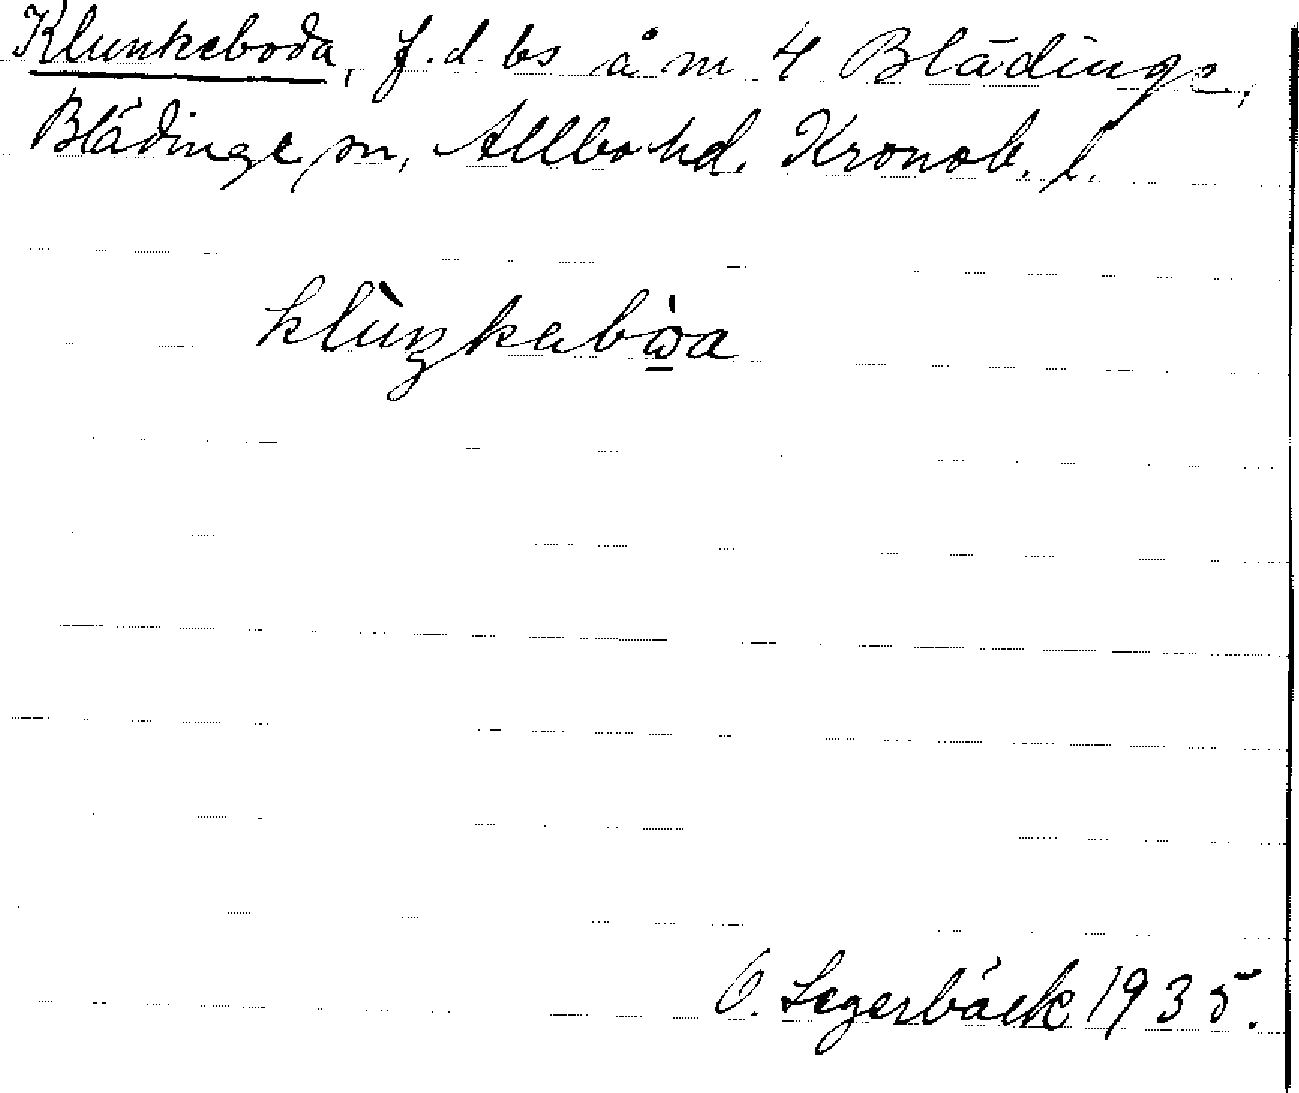 Klunkeboda, f. d. bs å m 4 Blädinge,
Blädinge sn, Allbo hd. Kronob. l.
klùŋkabὼa
O. Segerbäck 1935.